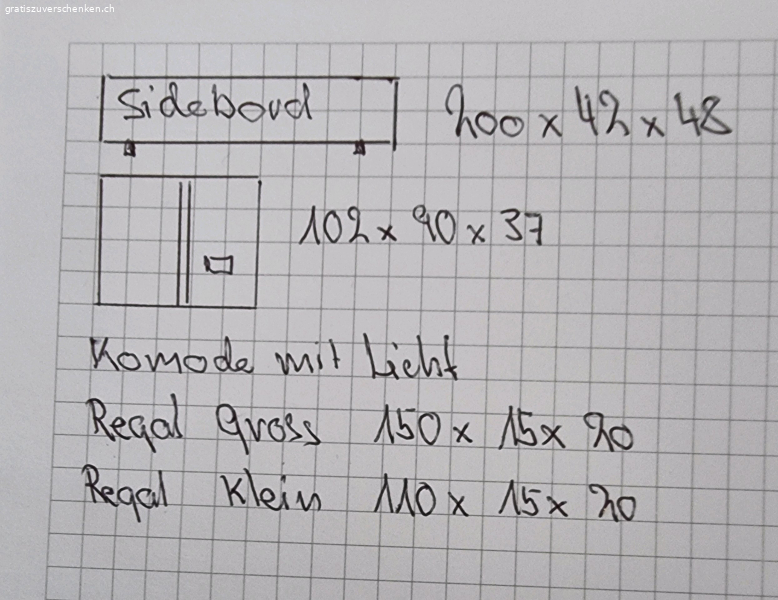 gratiszuverschenken.ch
Sideboud 200 x 42 x 48
102 x 90 x 37
Komode mit Licht
Regal Gross 150 x 15 x 20
Regal Klein 110 x 15 x 20